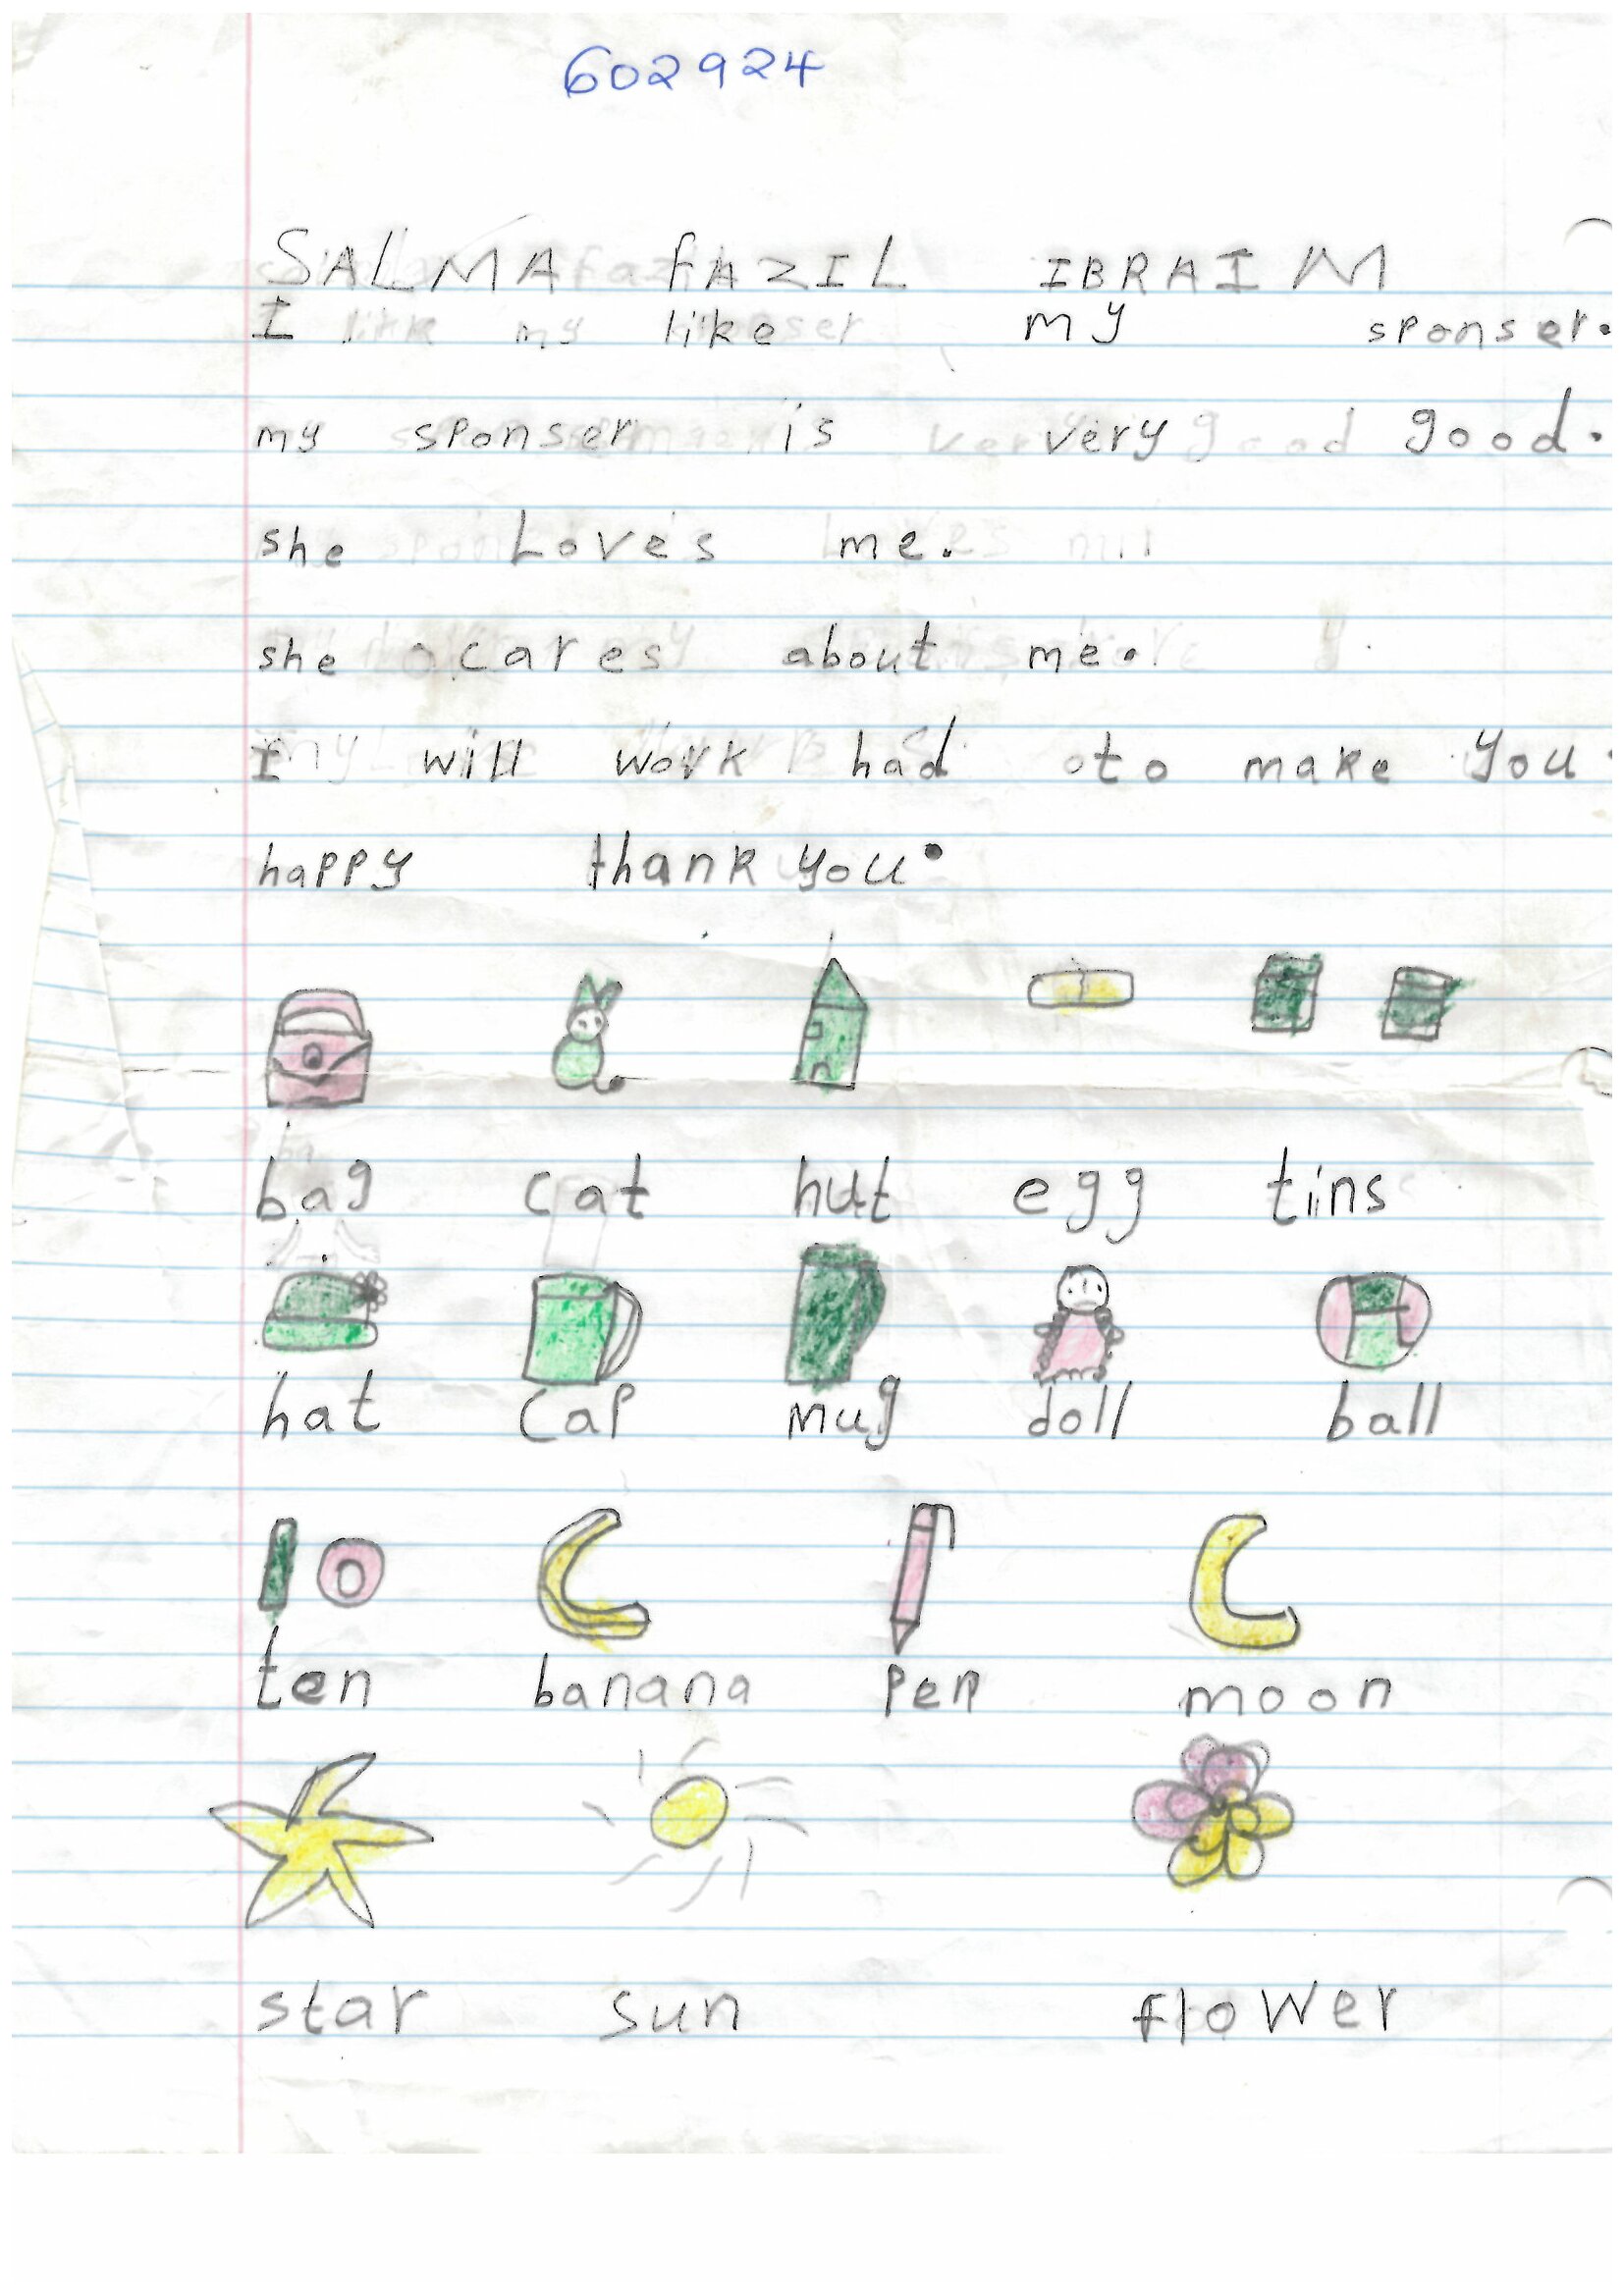 602924
SALMA fAZIL IBRAIM
I like my sponser.
my sponser is very good.
she Loves me.
she cares about me.
I will work had to make you
happy thank you.
bag cat hut egg tins
hat cap mug doll ball
10
ten banana pen moon
star sun flower